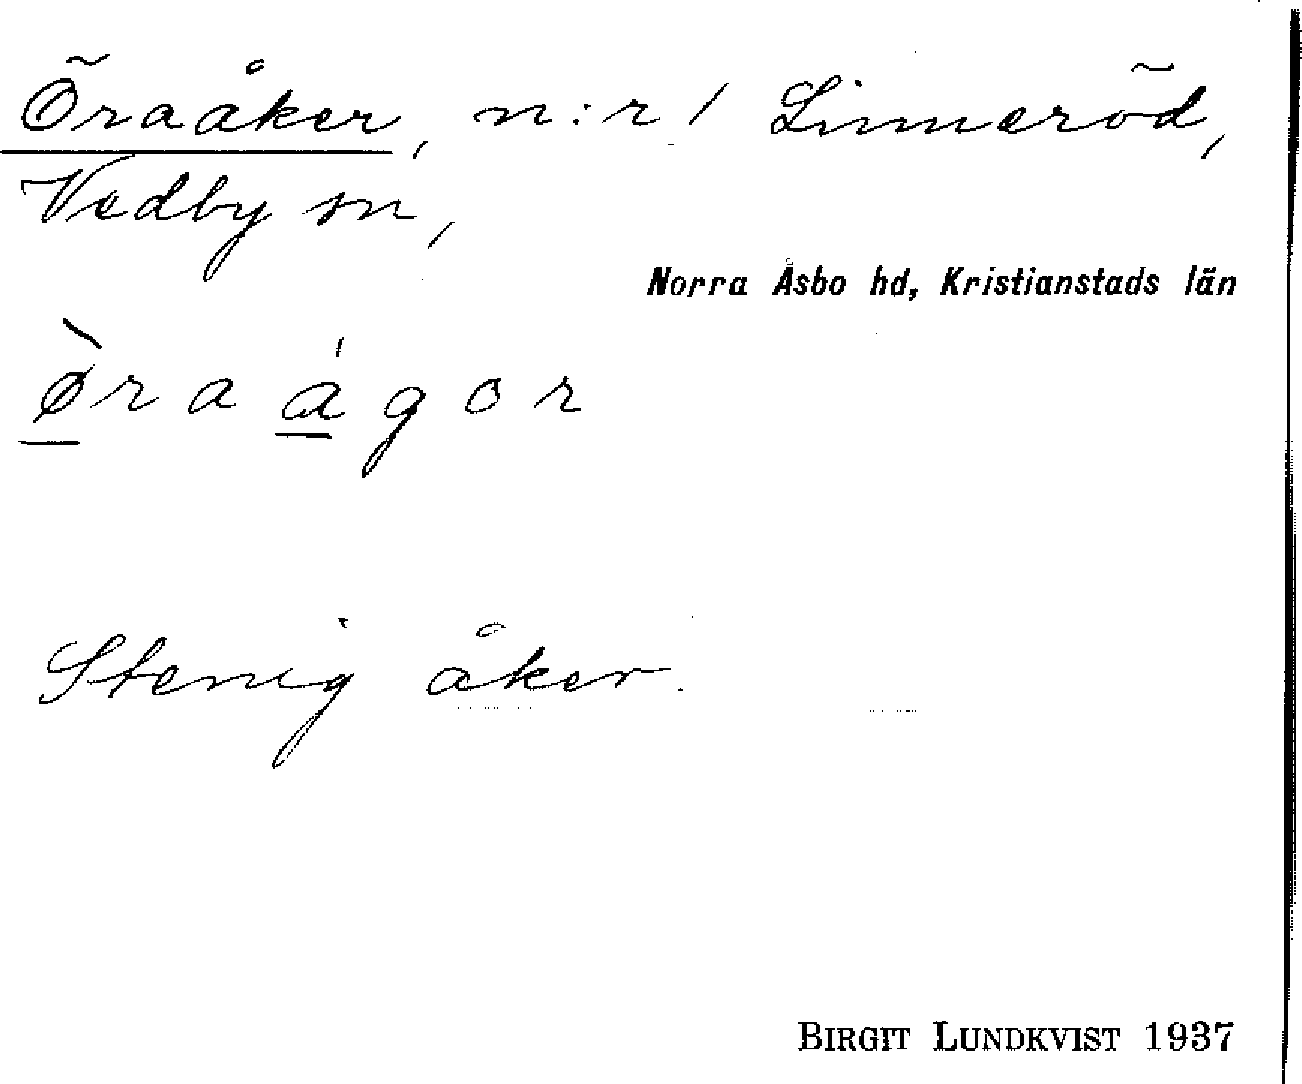 Öraåker, n:r 1 Linneröd,
Vedby sn,
Norra Åsbo hd, Kristianstads län
ø̀ra ágor
Stenig åker.
BIRGIT LUNDKVIST 1937